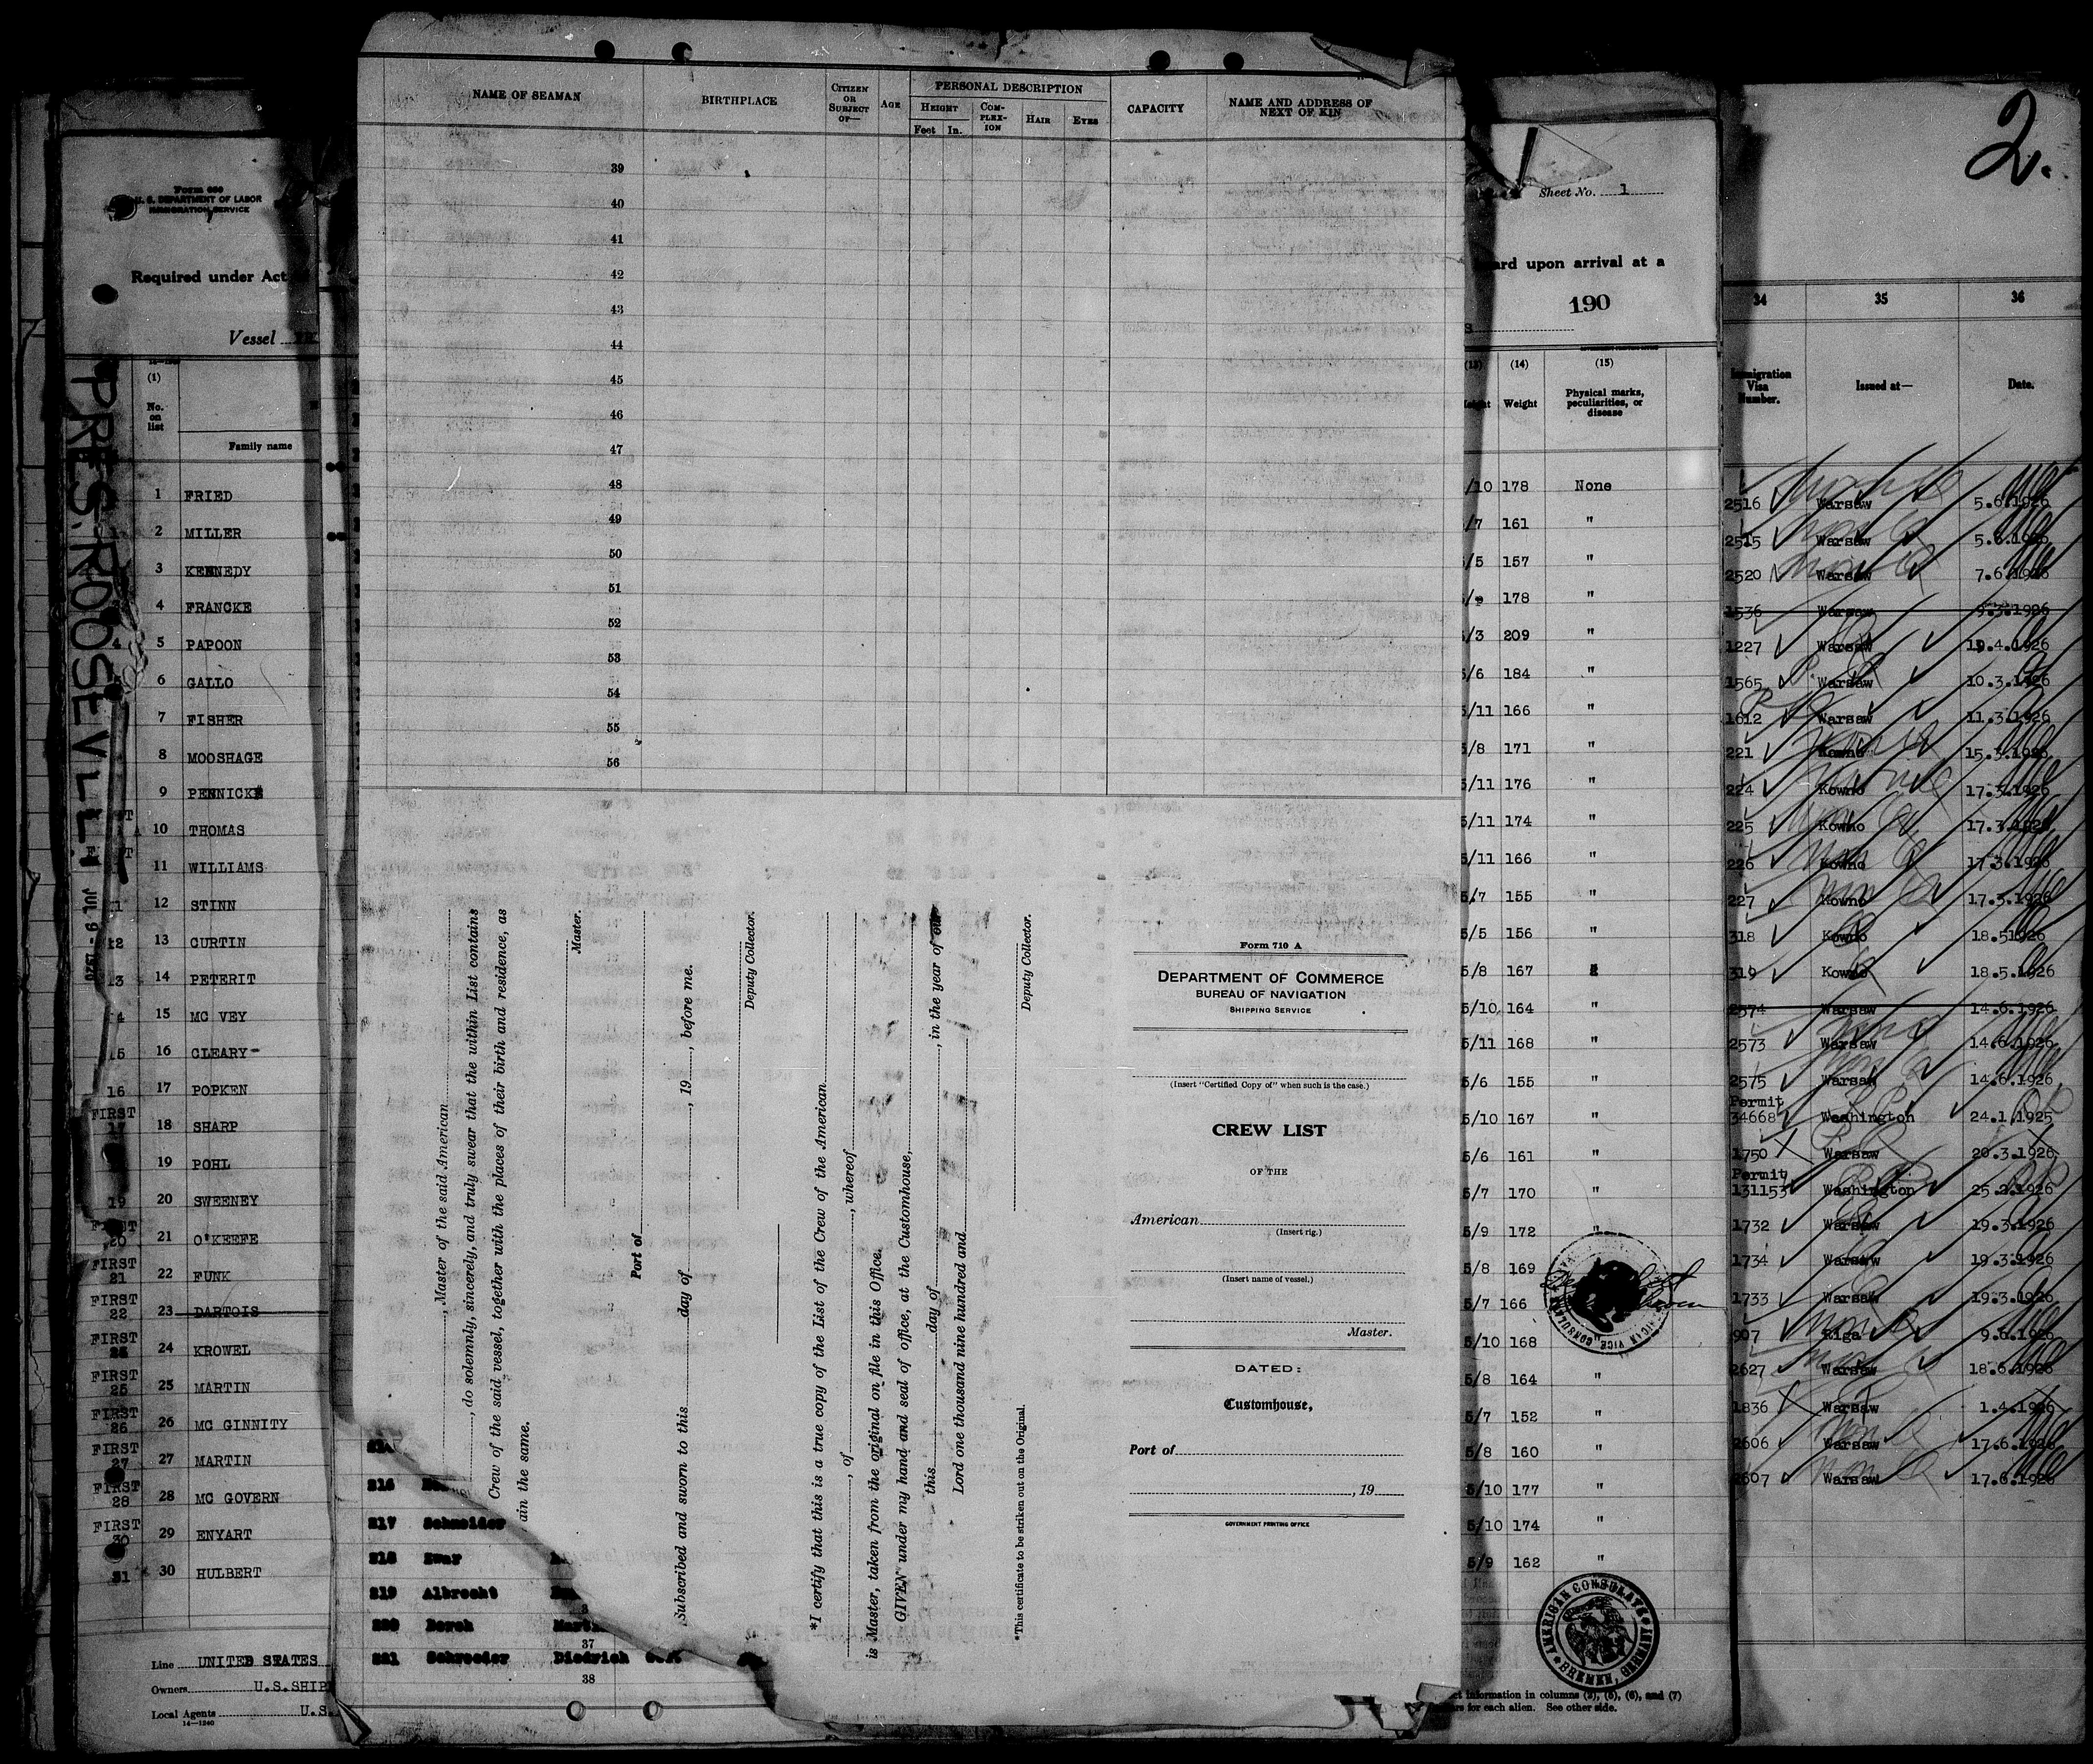 2.
Form 680
U. S. DEPARTMENT OF LABOR
IMMIGRATION SERVICE
Required under Act
Vessel
(1)
No.
on
list
Family name
PRES. ROOSEVELT
JUL 9 - 1926
1 FRIED
2 MILLER
3 KENNEDY
4 FRANCKE
5 PAPOON
6 GALLO
7 FISHER
8 MOOSHAGE
9 PENNICKE
10 THOMAS
11 WILLIAMS
12 STINN
13 CURTIN
14 PETERIT
15 MC VEY
16 CLEARY
17 POPKEN
18 SHARP
19 POHL
20 SWEENEY
21 O'KEEFE
22 FUNK
23 DARTOIS
24 KROWEL
25 MARTIN
26 MC GINNITY
27 MARTIN
28 MC GOVERN
29 ENYART
30 HULBERT
12
13
15
16
FIRST
17
19
FIRST
20
FIRST
21
FIRST
22
FIRST
FIRST
25
FIRST
26
FIRST
27
FIRST
28
FIRST
30
31
Line UNITED STATES
Owners U.S.SHIP
Local Agents U.S.
14—1240
NAME OF SEAMAN
BIRTHPLACE
CITIZEN
OR
SUBJECT
OF—
AGE
PERSONAL DESCRIPTION
HEIGHT
Feet In.
COM-
PLEX-
ION
HAIR
EYES
CAPACITY
NAME AND ADDRESS OF
NEXT OF KIN
39
40
41
42
43
44
45
46
47
48
49
50
51
52
53
54
55
56
, Master of the said American
, do solemnly, sincerely, and truly swear that the within List contains
Crew of the said vessel, together with the places of their birth and residence, as
ain the same.
Master.
Port of
Subscribed and sworn to this day of , 19 , before me.
Deputy Collector.
*I certify that this is a true copy of the List of the Crew of the American
, of , whereof
is Master, taken from the original on file in this Office.
GIVEN under my hand and seal of office, at the Customhouse,
this day of , in the year of our
Lord one thousand nine hundred and
Deputy Collector.
*This certificate to be striken out on the Original.
Form 710 A
DEPARTMENT OF COMMERCE
BUREAU OF NAVIGATION
SHIPPING SERVICE
(Insert "Certified Copy of" when such is the case.)
CREW LIST
OF THE
American
(Insert rig.)
(Insert name of vessel.)
Master.
DATED:
Customhouse,
Port of
, 19
GOVERNMENT PRINTING OFFICE
216
217 Schneider
218
219 Albrecht
220 Borch
37
221 Schroeder Diedrich
38
Sheet No. 1
ard upon arrival at a
190
(13) (14) (15)
Weight
Physical marks,
peculiarities, or
disease
/10 178 None
/7 161 "
/5 157 "
178 "
/3 209 "
5/6 184 "
5/11 166 "
5/8 171 "
5/11 176 "
5/11 174 "
5/11 166 "
5/7 155 "
5/5 156 "
5/8 167
5/10 164 "
5/11 168 "
5/6 155 "
5/10 167 "
5/6 161 "
5/7 170 "
5/9 172 "
5/8 169
5/7 166
5/10 168
5/8 164 "
5/7 152 "
5/8 160 "
5/10 177 "
5/10 174 "
5/9 162 "
AMERICAN CONSULATE
BREMEN, GERMANY
information in columns (3), (5), (6), and (7)
for each alien. See other side.
34 35 36
Immigration
Visa
Number.
Issued at—
Date.
2516 Warsaw 5.6.1926
2515 Warsaw 5.6.1926
2520 Warsaw 7.6.1926
1536 Warsaw 9.3.1926
1227 Warsaw 19.4.1926
1565 Warsaw 10.3.1926
1612 Warsaw 11.3.1926
221 Kowno 15.3.1926
224 Kowno 17.3.1926
225 Kowno 17.3.1926
226 Kowno 17.3.1926
227 Kowno 17.3.1926
318 Kowno 18.5.1926
319 Kowno 18.5.1926
2574 Warsaw 14.6.1926
2573 Warsaw 14.6.1926
2575 Warsaw 14.6.1926
Permit
34668 Washington 24.1.1925
1750 Warsaw 20.3.1926
Permit
131153 Washington 25.2.1926
1732 Warsaw 19.3.1926
1734 Warsaw 19.3.1926
1733 Warsaw 19.3.1926
907 Riga 9.6.1926
2627 Warsaw 18.6.1926
1836 Warsaw 1.4.1926
2606 Warsaw 17.6.1926
2607 Warsaw 17.6.1926